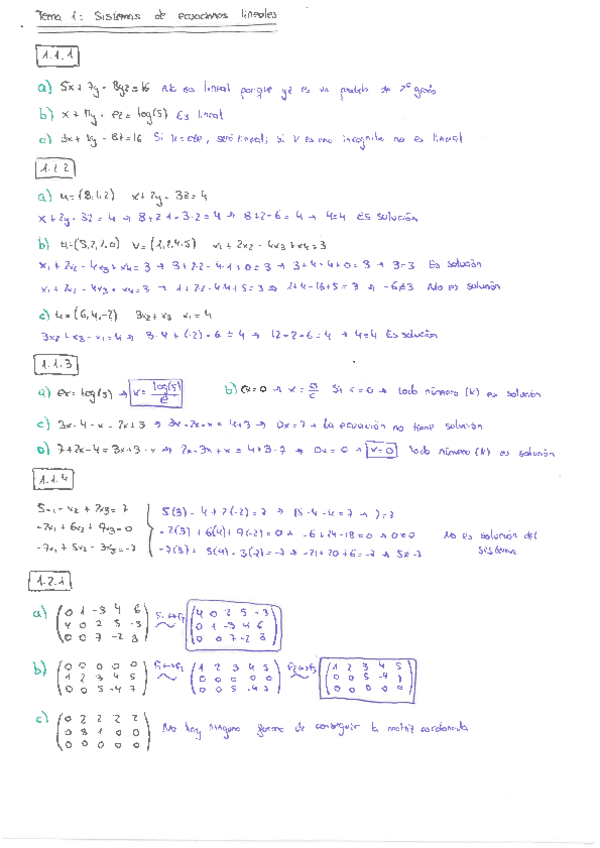 Tema 1: Sistemas de ecuaciones lineales
1.1.1
a) 5x + 7y - 8yz = 16 No es lineal porque yz es un de 2º grado
b) x + πy - ez = log(5) Es lineal
c) 3x + ky - 8z = 16 Si k = cte, será lineal; si k es una incognita no es lineal
1.1.2
a) u = (8,1,2) x + 2y - 3z = 4
x + 2y - 3z = 4 → 8 + 2·1 - 3·2 = 4 → 8 + 2 - 6 = 4 → 4 = 4 Es solución
b) u = (3,2,1,0) v = (1,2,4,5) x₁ + 2x₂ - 4x₃ + x₄ = 3
x₁ + 2x₂ - 4x₃ + x₄ = 3 → 3 + 2·2 - 4·1 + 0 = 3 → 3 + 4 - 4 + 0 = 3 → 3 = 3 Es solución
x₁ + 2x₂ - 4x₃ + x₄ = 3 → 1 + 2·2 - 4·4 + 5 = 3 → 1 + 4 - 16 + 5 = 3 → -6 ≠ 3 No es solución
c) u = (6,4,-2) 3x₂ + x₃ - x₁ = 4
3x₂ + x₃ - x₁ = 4 → 3·4 + (-2) - 6 = 4 → 12 - 2 - 6 = 4 → 4 = 4 Es solución
1.1.3
a) ex = log(5) → x = log(5)/e b) cx = 0 → x = 0/c Si c = 0 → todo número (k) es solución
c) 3x - 4 - x = 2x + 3 → 3x - 2x - x = 4 + 3 → 0x = 7 → La ecuación no tiene solución
d) 7 + 2x - 4 = 3x + 3 - x → 2x - 3x + x = -4 + 3 - 7 → 0x = 0 → x = 0 todo número (k) es solución
1.1.4
5x₁ - x₂ + 2x₃ = 7 5(3) - 4 + 2(-2) = 7 → 15 - 4 - 4 = 7 → 7 = 7
-2x₁ + 6x₂ + 9x₃ = 0 -2(3) + 6(4) + 9(-2) = 0 → -6 + 24 - 18 = 0 → 0 = 0 No es solución del
-7x₁ + 5x₂ - 3x₃ = -7 -7(3) + 5(4) - 3(-2) = -7 → -21 + 20 + 6 = -7 → 5 ≠ -7 sistema
1.2.1
a) 0 1 -3 4 6 F₁↔F₂ 4 0 2 5 -3
4 0 2 5 -3 0 1 -3 4 6
0 0 7 -2 3 0 0 7 -2 3
b) 0 0 0 0 0 F₁↔F₂ 1 2 3 4 5 F₂↔F₃ 1 2 3 4 5
1 2 3 4 5 0 0 0 0 0 0 0 5 -4 7
0 0 5 -4 7 0 0 5 -4 7 0 0 0 0 0
c) 0 2 2 2 2 No hay ninguna forma de conseguir la matriz escalonada
0 3 1 0 0
0 0 0 0 0